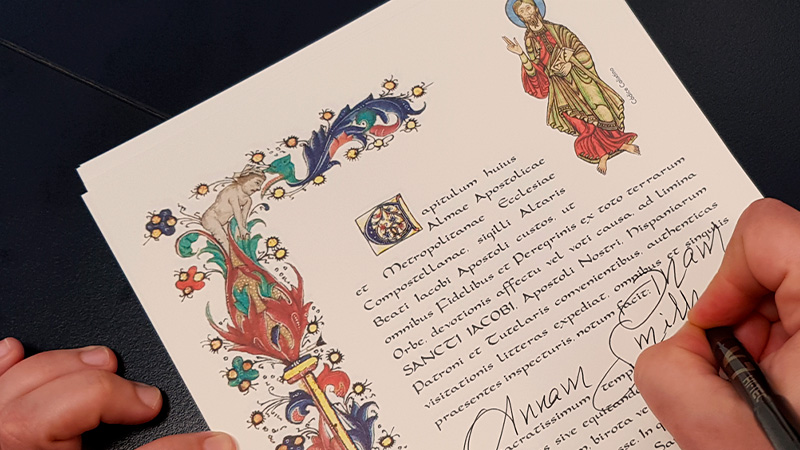 Codex Calixtino
Capitulum huius
Almae Apostolicae
et Metropolitanae Ecclesiae
Compostellanae, sigilli Altaris
Beati Iacobi Apostoli custos, ut
omnibus Fidelibus et Peregrinis ex toto terrarum
Orbe, devotionis affectu vel voti causa, ad limina
SANCTI IACOBI, Apostoli Nostri, Hispaniarum
Patroni et Tutelaris convenientibus, authenticas
visitationis litteras expediat, omnibus et singulis
praesentes inspecturis, notum facit:
Annam
Smith
acratissimum temp
s sive equitando
birota